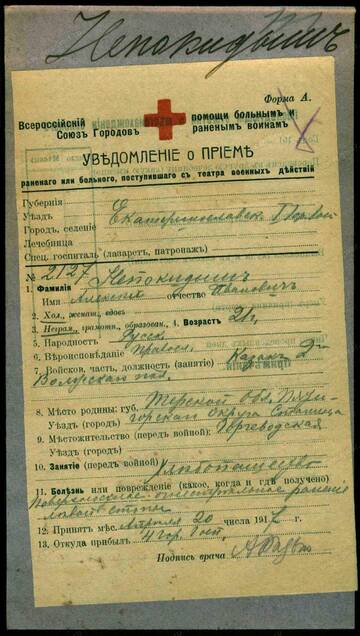 Непокидышъ
Форма А.
Всероссійскій Союзъ Городовъ
помощи больнымъ и раненымъ воинамъ
УВѢДОМЛЕНІЕ О ПРІЕМѢ
раненаго или больного, поступившаго съ театра военныхъ дѣйствій
Губернія
Уѣздъ
Городъ, селеніе Екатеринославск.
Лечебница
Спец. госпиталь (лазаретъ, патронажъ)
№ 2127
1. Фамилія Непокидышъ
Имя Алексей отчество Ивановичъ
2. Хол., женат., вдовъ
3. Неграм., грамотн., образован. 4. Возрастъ
5. Народность Русск.
6. Вѣроисповѣданіе Правосл.
7. Войсков. часть, должность (занятіе) Казакъ 2го
Волгскаго пол.
8. Мѣсто родины: губ. Терской Обл. Пяти-
Уѣздъ (городъ) горскаго Округа Станица
9. Мѣстожительство (передъ войной) Георгеводская
Уѣздъ (городъ)
10. Занятіе (передъ войной) Хлѣбопашество
11. Болѣзнь или поврежденіе (какое, когда и гдѣ получено)
ранение
лѣвой стопы
12. Принятъ мѣс. Апреля 20 числа 191
13. Откуда прибылъ 4 гор. Госп.
Подпись врача